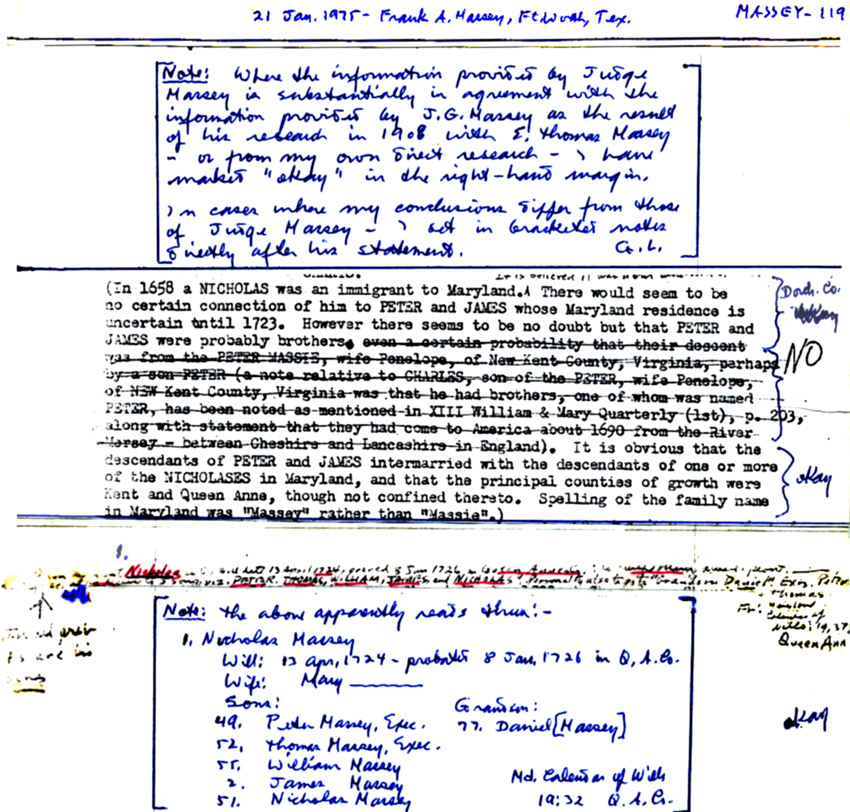 21 Jan. 1975 - Frank A. Massey, Ft. Worth, Tex.
MASSEY - 119
Note: Where the information provided by Judge
Massey is substantially in agreement with the
information provided by J.G. Massey as the result
of his research in 1908 with E. Thomas Massey
- or from my own direct research - I have
marked "okay" in the right-hand margin.
In cases where my conclusions differ from those
of Judge Massey - I set in bracketed notes
directly after his statement. G.L.
(In 1658 a NICHOLAS was an immigrant to Maryland. There would seem to be
no certain connection of him to PETER and JAMES whose Maryland residence is
uncertain until 1723. However there seems to be no doubt but that PETER and
JAMES were probably brothers, even a certain probability that their descent
was from the PETER MASSIE, wife Penelope, of New Kent County, Virginia, perhaps
by a son PETER (a note relative to CHARLES, son of the PETER, wife Penelope,
of NEW Kent County, Virginia was that he had brothers, one of whom was named
PETER, has been noted as mentioned in XIII William & Mary Quarterly (1st), p. 203,
along with statement that they had come to America about 1690 from the River
Mersey - between Cheshire and Lancashire in England). It is obvious that the
descendants of PETER and JAMES intermarried with the descendants of one or more
of the NICHOLASES in Maryland, and that the principal counties of growth were
Kent and Queen Anne, though not confined thereto. Spelling of the family name
in Maryland was "Massey" rather than "Massie".)
Dorch. Co.
NO
okay
1.
Nicholas
PETER, THOMAS, WILLIAM, JAMES and NICHOLAS
Queen Ann
Note: the above apparently reads thus:-
1. Nicholas Massey
Will: 13 Apr, 1724 - probated 8 Jan, 1726 in Q.A.Co.
Wife: Mary
Sons: Grandson:
49. Peter Massey, Exec. 77. Daniel [Massey]
52. Thomas Massey, Exec.
55. William Massey
2. James Massey
51. Nicholas Massey
Md. Calendar of Wills
19:32 Q.A.Co.
okay